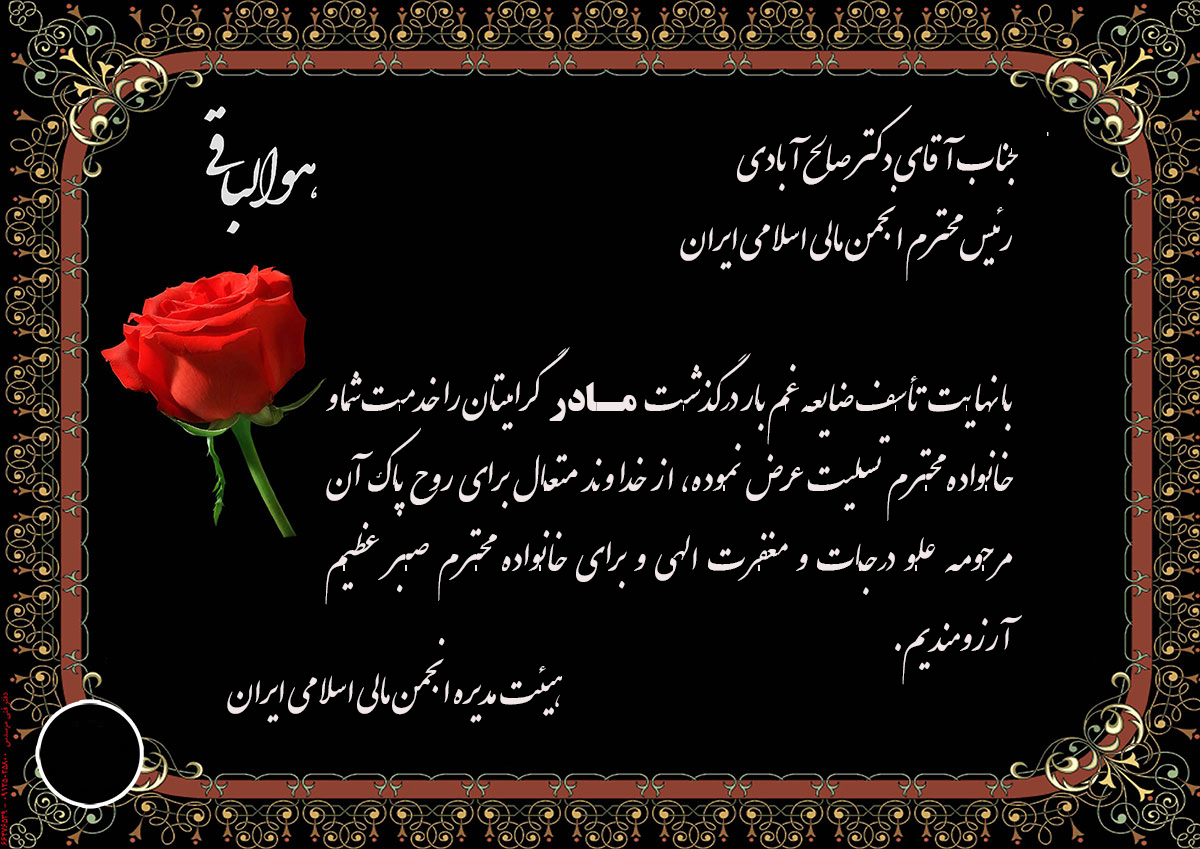 هوالباقی
جناب آقای دکتر صالح آبادی
رئیس محترم انجمن مالی اسلامی ایران
بانهایت تأسف ضایعه غم بار درگذشت مادر گرامیتان را خدمت شما و
خانواده محترم تسلیت عرض نموده، از خداوند متعال برای روح پاک آن
مرحومه علو درجات و مغفرت الهی و برای خانواده محترم صبر عظیم
آرزومندیم.
هیئت مدیره انجمن مالی اسلامی ایران